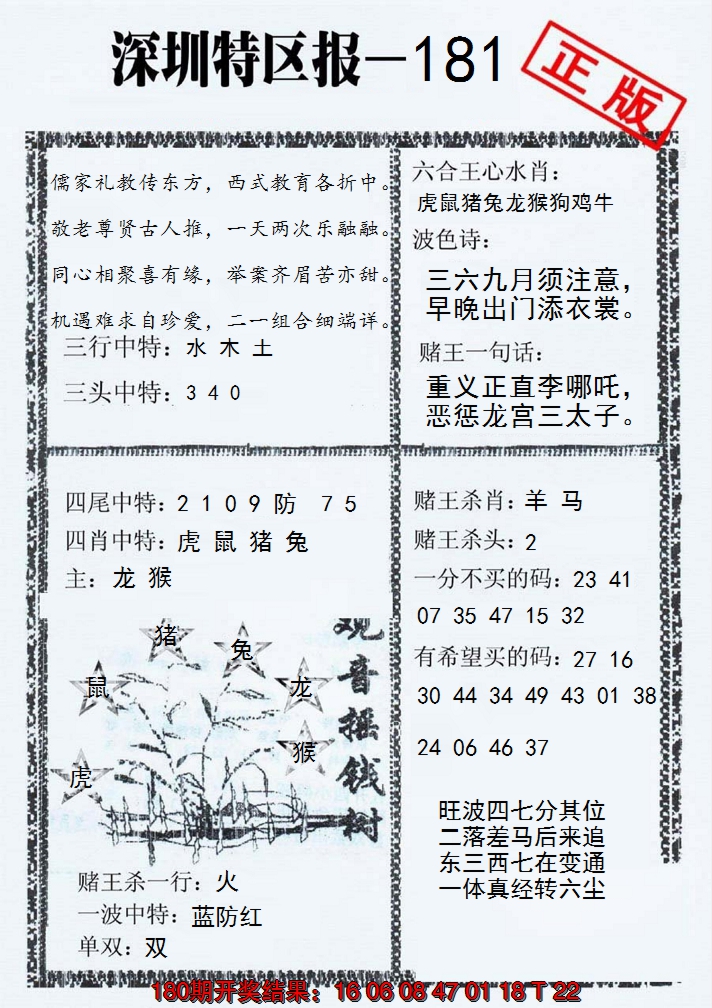 深圳特区报—181
正版
儒家礼教传东方，西式教育各折中。
敬老尊贤古人推，一天两次乐融融。
同心相聚喜有缘，举案齐眉苦亦甜。
机遇难求自珍爱，二一组合细端详。
三行中特：水 木 土
三头中特：3 4 0
六合王心水肖：
虎鼠猪兔龙猴狗鸡牛
波色诗：
三六九月须注意，
早晚出门添衣裳。
赌王一句话：
重义正直李哪吒，
恶惩龙宫三太子。
四尾中特：2 1 0 9 防 7 5
四肖中特：虎 鼠 猪 兔
主：龙 猴
观音摇钱树
猪
兔
鼠
龙
猴
虎
赌王杀一行：火
一波中特：蓝防红
单双：双
赌王杀肖：羊 马
赌王杀头：2
一分不买的码：23 41
07 35 47 15 32
有希望买的码：27 16
30 44 34 49 43 01 38
24 06 46 37
旺波四七分其位
二落差马后来追
东三西七在变通
一体真经转六尘
180期开奖结果：16 06 08 47 01 18 T 22